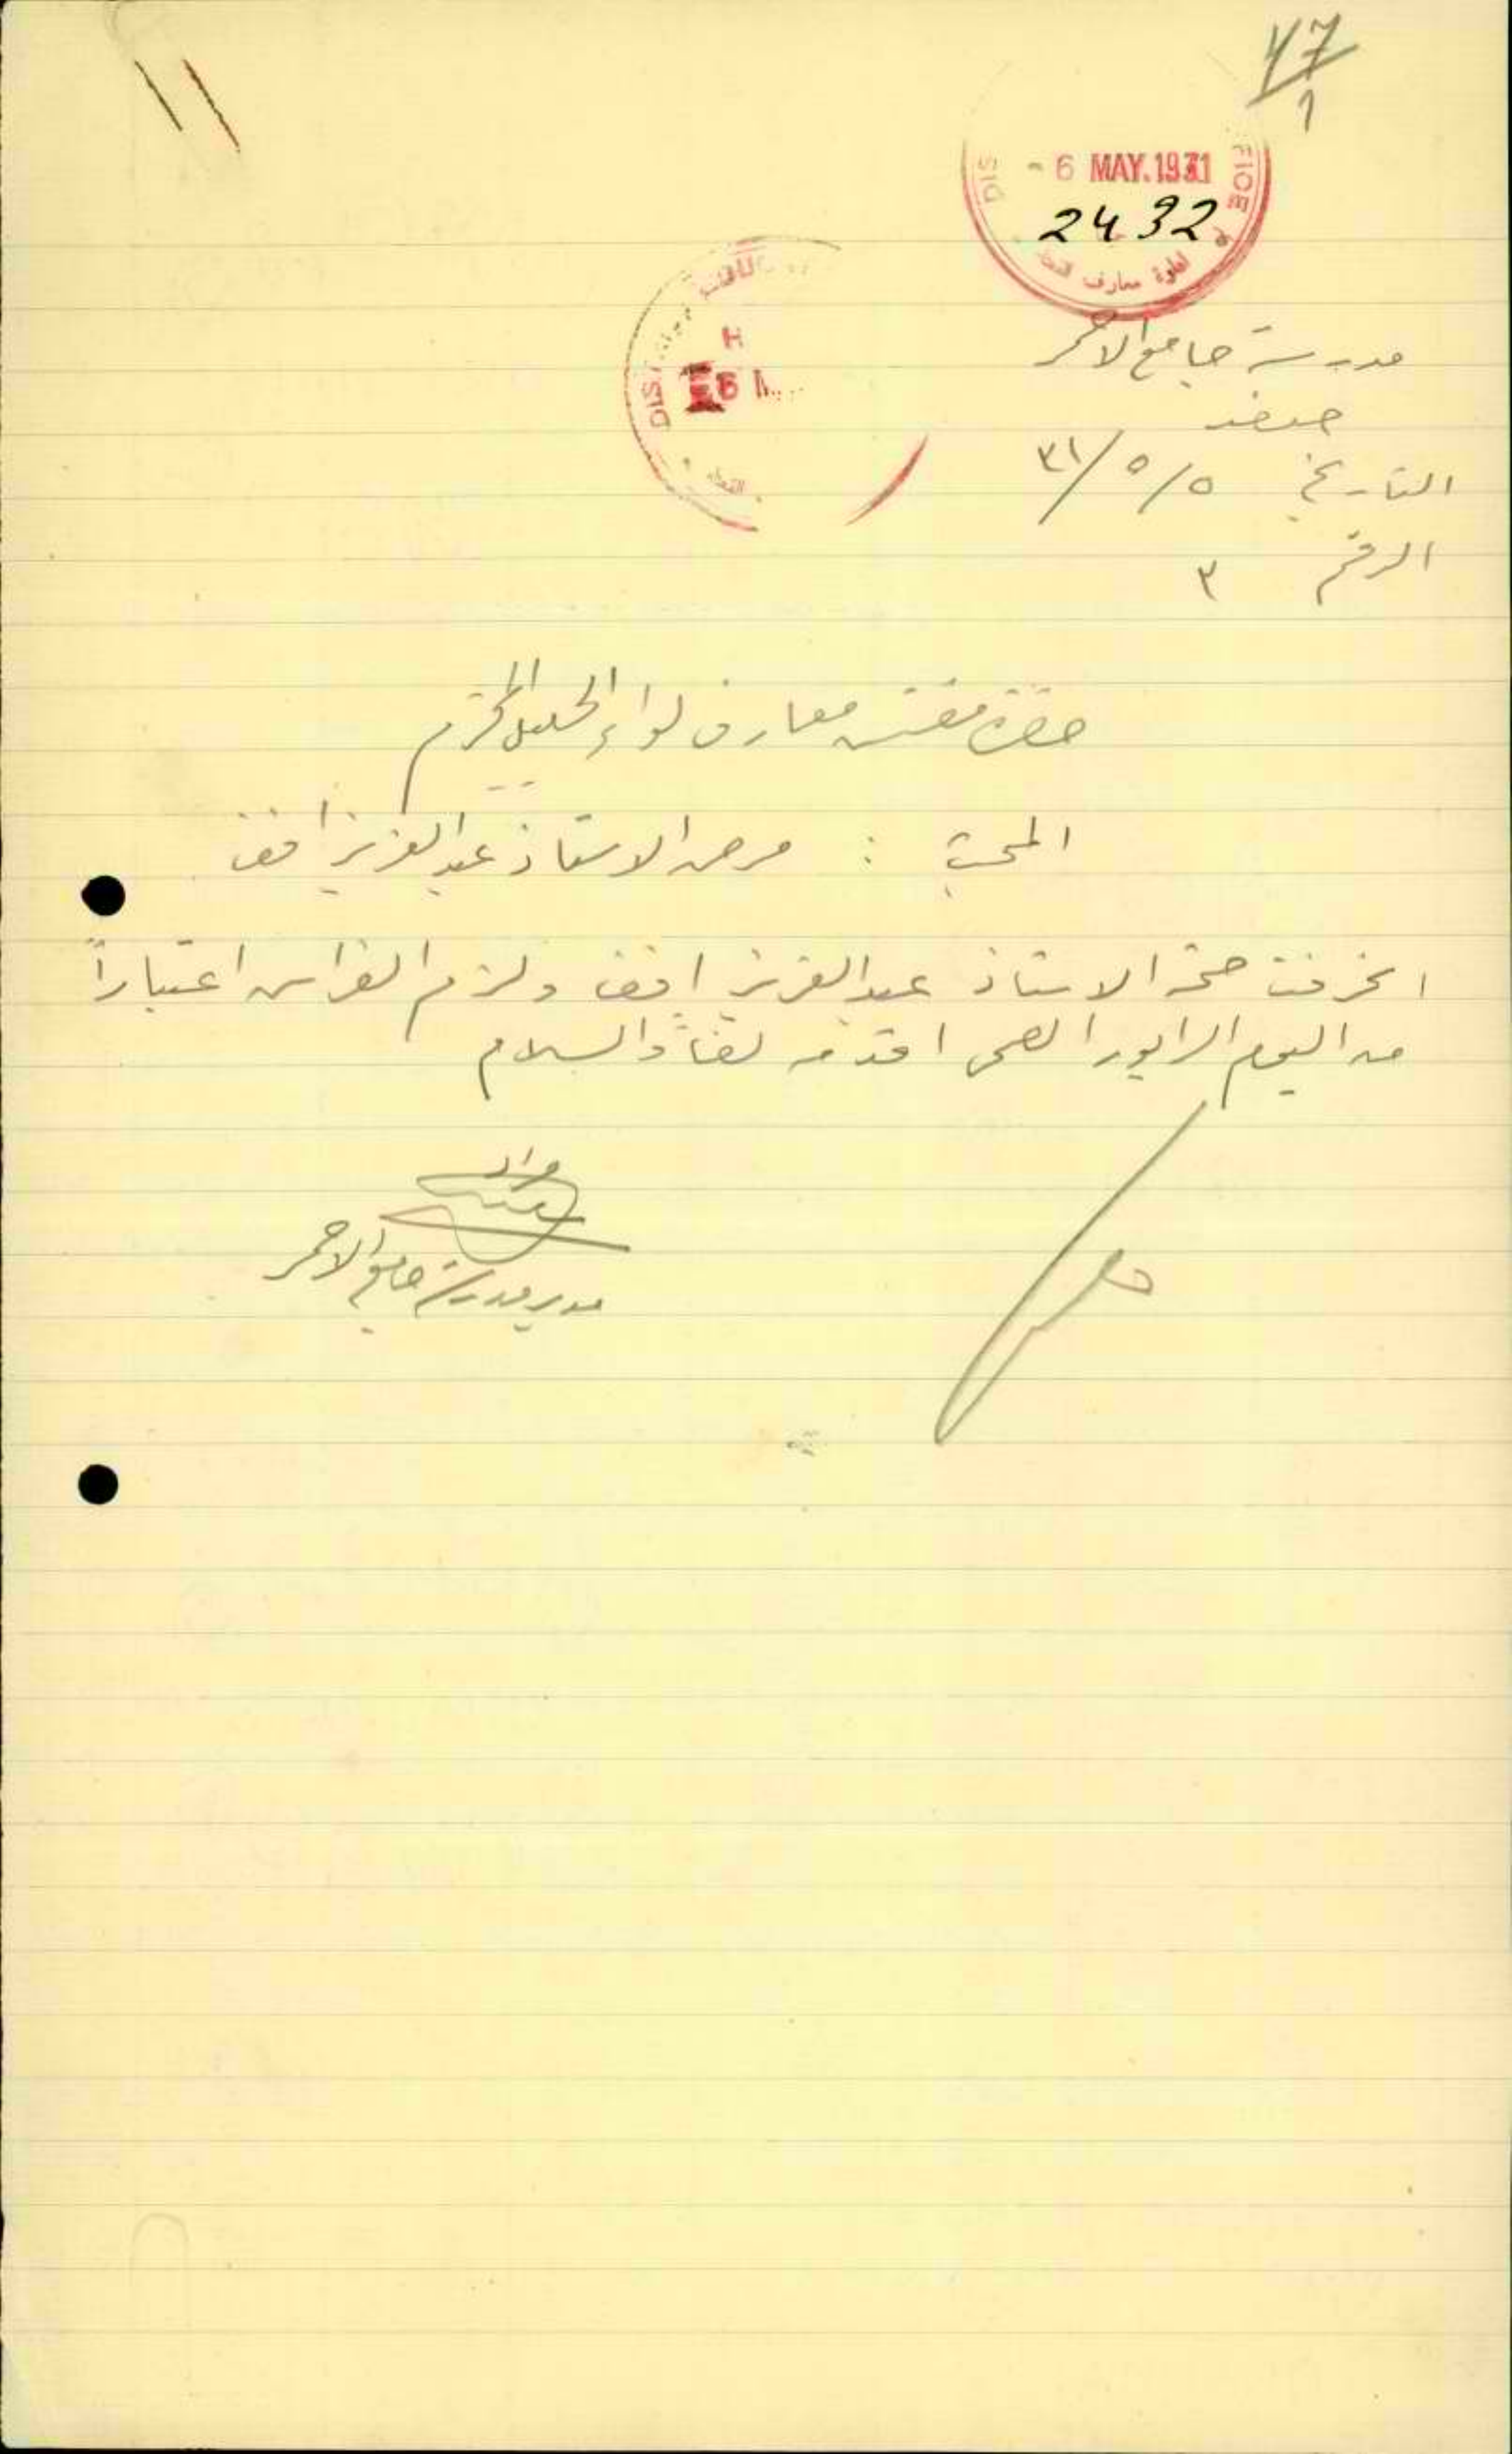 ١١
47
1
- 6 MAY. 1931
2432
مدرسة جامع الاحمر
صفد
التاريخ ٥/٥/٣١
الرقم ٣
حضرة مفتش معارف لواء الجليل المحترم
المبحث : مرض الاستاذ عبد العزيز افندي
انحرفت صحة الاستاذ عبد العزيز افندي ولزم الفراش اعتباراً
من اليوم الرابور الصحي اقدمه لفاً والسلام
مدير مدرسة جامع الاحمر